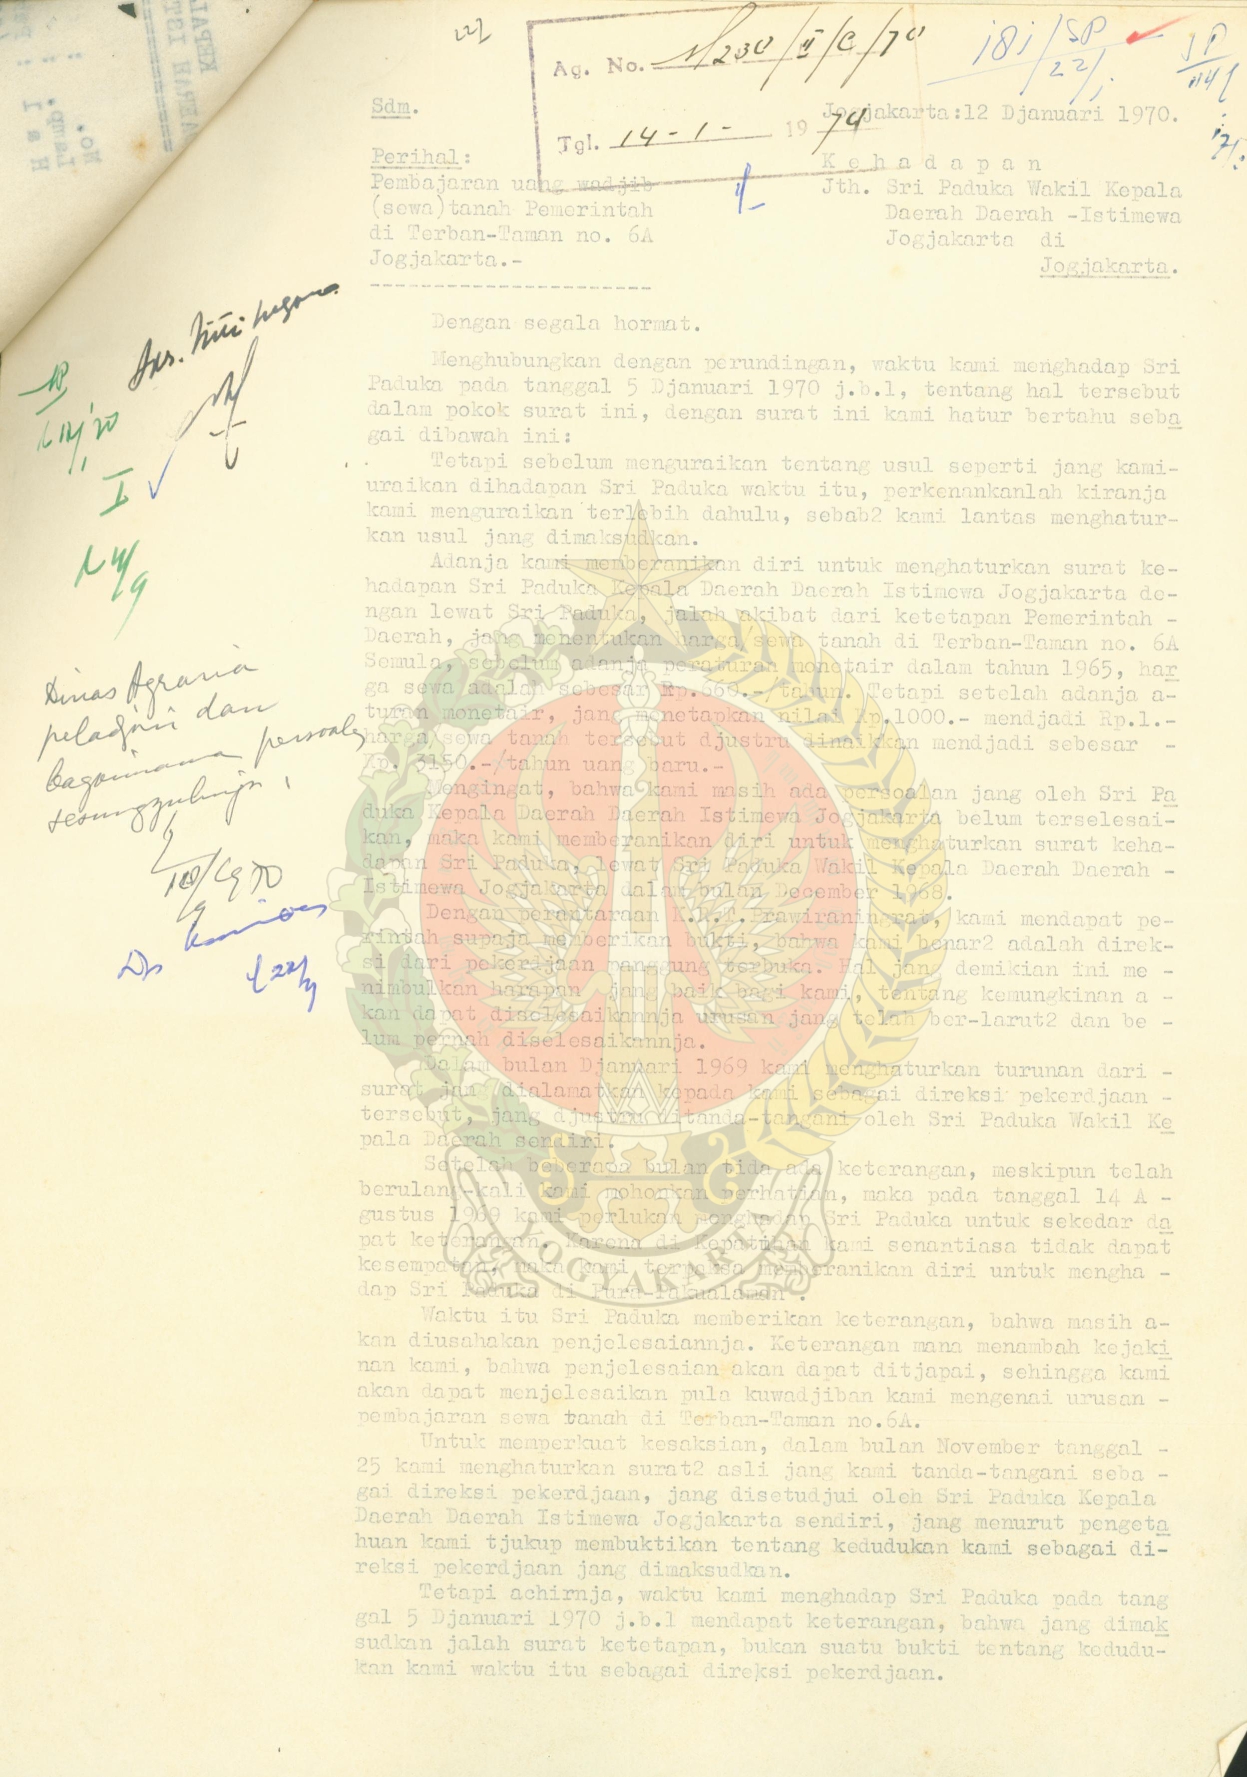 Ag. No. 230/II/C/70
181/SP
22/1
SP
Sdm.
Jogjakarta:12 Djanuari 1970.
Tgl. 14-1- 1970
Perihal:
Pembajaran uang wadjib
(sewa)tanah Pemerintah
di Terban-Taman no. 6A
Jogjakarta.-
K e h a d a p a n
Jth. Sri Paduka Wakil Kepala
Daerah Daerah -Istimewa
Jogjakarta di
Jogjakarta.
Dengan segala hormat.
Menghubungkan dengan perundingan, waktu kami menghadap Sri
Paduka pada tanggal 5 Djanuari 1970 j.b.l, tentang hal tersebut
dalam pokok surat ini, dengan surat ini kami hatur bertahu seba
gai dibawah ini:
Tetapi sebelum menguraikan tentang usul seperti jang kami-
uraikan dihadapan Sri Paduka waktu itu, perkenankanlah kiranja
kami menguraikan terlebih dahulu, sebab2 kami lantas menghatur-
kan usul jang dimaksudkan.
Adanja kami memberanikan diri untuk menghaturkan surat ke-
hadapan Sri Paduka Kepala Daerah Daerah Istimewa Jogjakarta de-
ngan lewat Sri Paduka, jalah akibat dari ketetapan Pemerintah -
Daerah, jang menentukan harga sewa tanah di Terban-Taman no. 6A
Semula, sebelum adanja peraturan monetair dalam tahun 1965, har
ga sewa adalah sebesar Rp.660.-/tahun. Tetapi setelah adanja a-
turan monetair, jang menetapkan nilai Rp.1000.- mendjadi Rp.1.-
harga sewa tanah tersebut djustru dinaikkan mendjadi sebesar -
Rp. 3150.-/tahun uang baru.-
Mengingat, bahwa kami masih ada persoalan jang oleh Sri Pa
duka Kepala Daerah Daerah Istimewa Jogjakarta belum terselesai-
kan, maka kami memberanikan diri untuk menghaturkan surat keha-
dapan Sri Paduka, lewat Sri Paduka Wakil Kepala Daerah Daerah -
Istimewa Jogjakarta dalam bulan December 1968.
Dengan perantaraan K.R.T.Prawiraningrat, kami mendapat pe-
rintah supaja memberikan bukti, bahwa kami benar2 adalah direk-
si dari pekerdjaan panggung terbuka. Hal jang demikian ini me -
nimbulkan harapan jang baik bagi kami, tentang kemungkinan a -
kan dapat diselesaikannja urusan jang telah ber-larut2 dan be -
lum pernah diselesaikannja.
Dalam bulan Djanuari 1969 kami menghaturkan turunan dari -
surat jang dialamatkan kepada kami sebagai direksi pekerdjaan -
tersebut, jang djustru ditanda-tangani oleh Sri Paduka Wakil Ke
pala Daerah sendiri.
Setelah beberapa bulan tida ada keterangan, meskipun telah
berulang-kali kami mohonkan perhatian, maka pada tanggal 14 A -
gustus 1969 kami perlukan menghadap Sri Paduka untuk sekedar da
pat keterangan. Karena di Kepatihan kami senantiasa tidak dapat
kesempatan, maka kami terpaksa memberanikan diri untuk mengha -
dap Sri Paduka di Pura Pakualaman .
Waktu itu Sri Paduka memberikan keterangan, bahwa masih a-
kan diusahakan penjelesaiannja. Keterangan mana menambah kejaki
nan kami, bahwa penjelesaian akan dapat ditjapai, sehingga kami
akan dapat menjelesaikan pula kuwadjiban kami mengenai urusan -
pembajaran sewa tanah di Terban-Taman no.6A.
Untuk memperkuat kesaksian, dalam bulan November tanggal -
25 kami menghaturkan surat2 asli jang kami tanda-tangani seba -
gai direksi pekerdjaan, jang disetudjui oleh Sri Paduka Kepala
Daerah Daerah Istimewa Jogjakarta sendiri, jang menurut pengeta
huan kami tjukup membuktikan tentang kedudukan kami sebagai di-
reksi pekerdjaan jang dimaksudkan.
Tetapi achirnja, waktu kami menghadap Sri Paduka pada tang
gal 5 Djanuari 1970 j.b.l mendapat keterangan, bahwa jang dimak
sudkan jalah surat ketetapan, bukan suatu bukti tentang kedudu-
kan kami waktu itu sebagai direksi pekerdjaan.
I
Dinas Agraria
peladjari dan
bagaimana persoalan
sesungguhnja
JOGYAKARTA